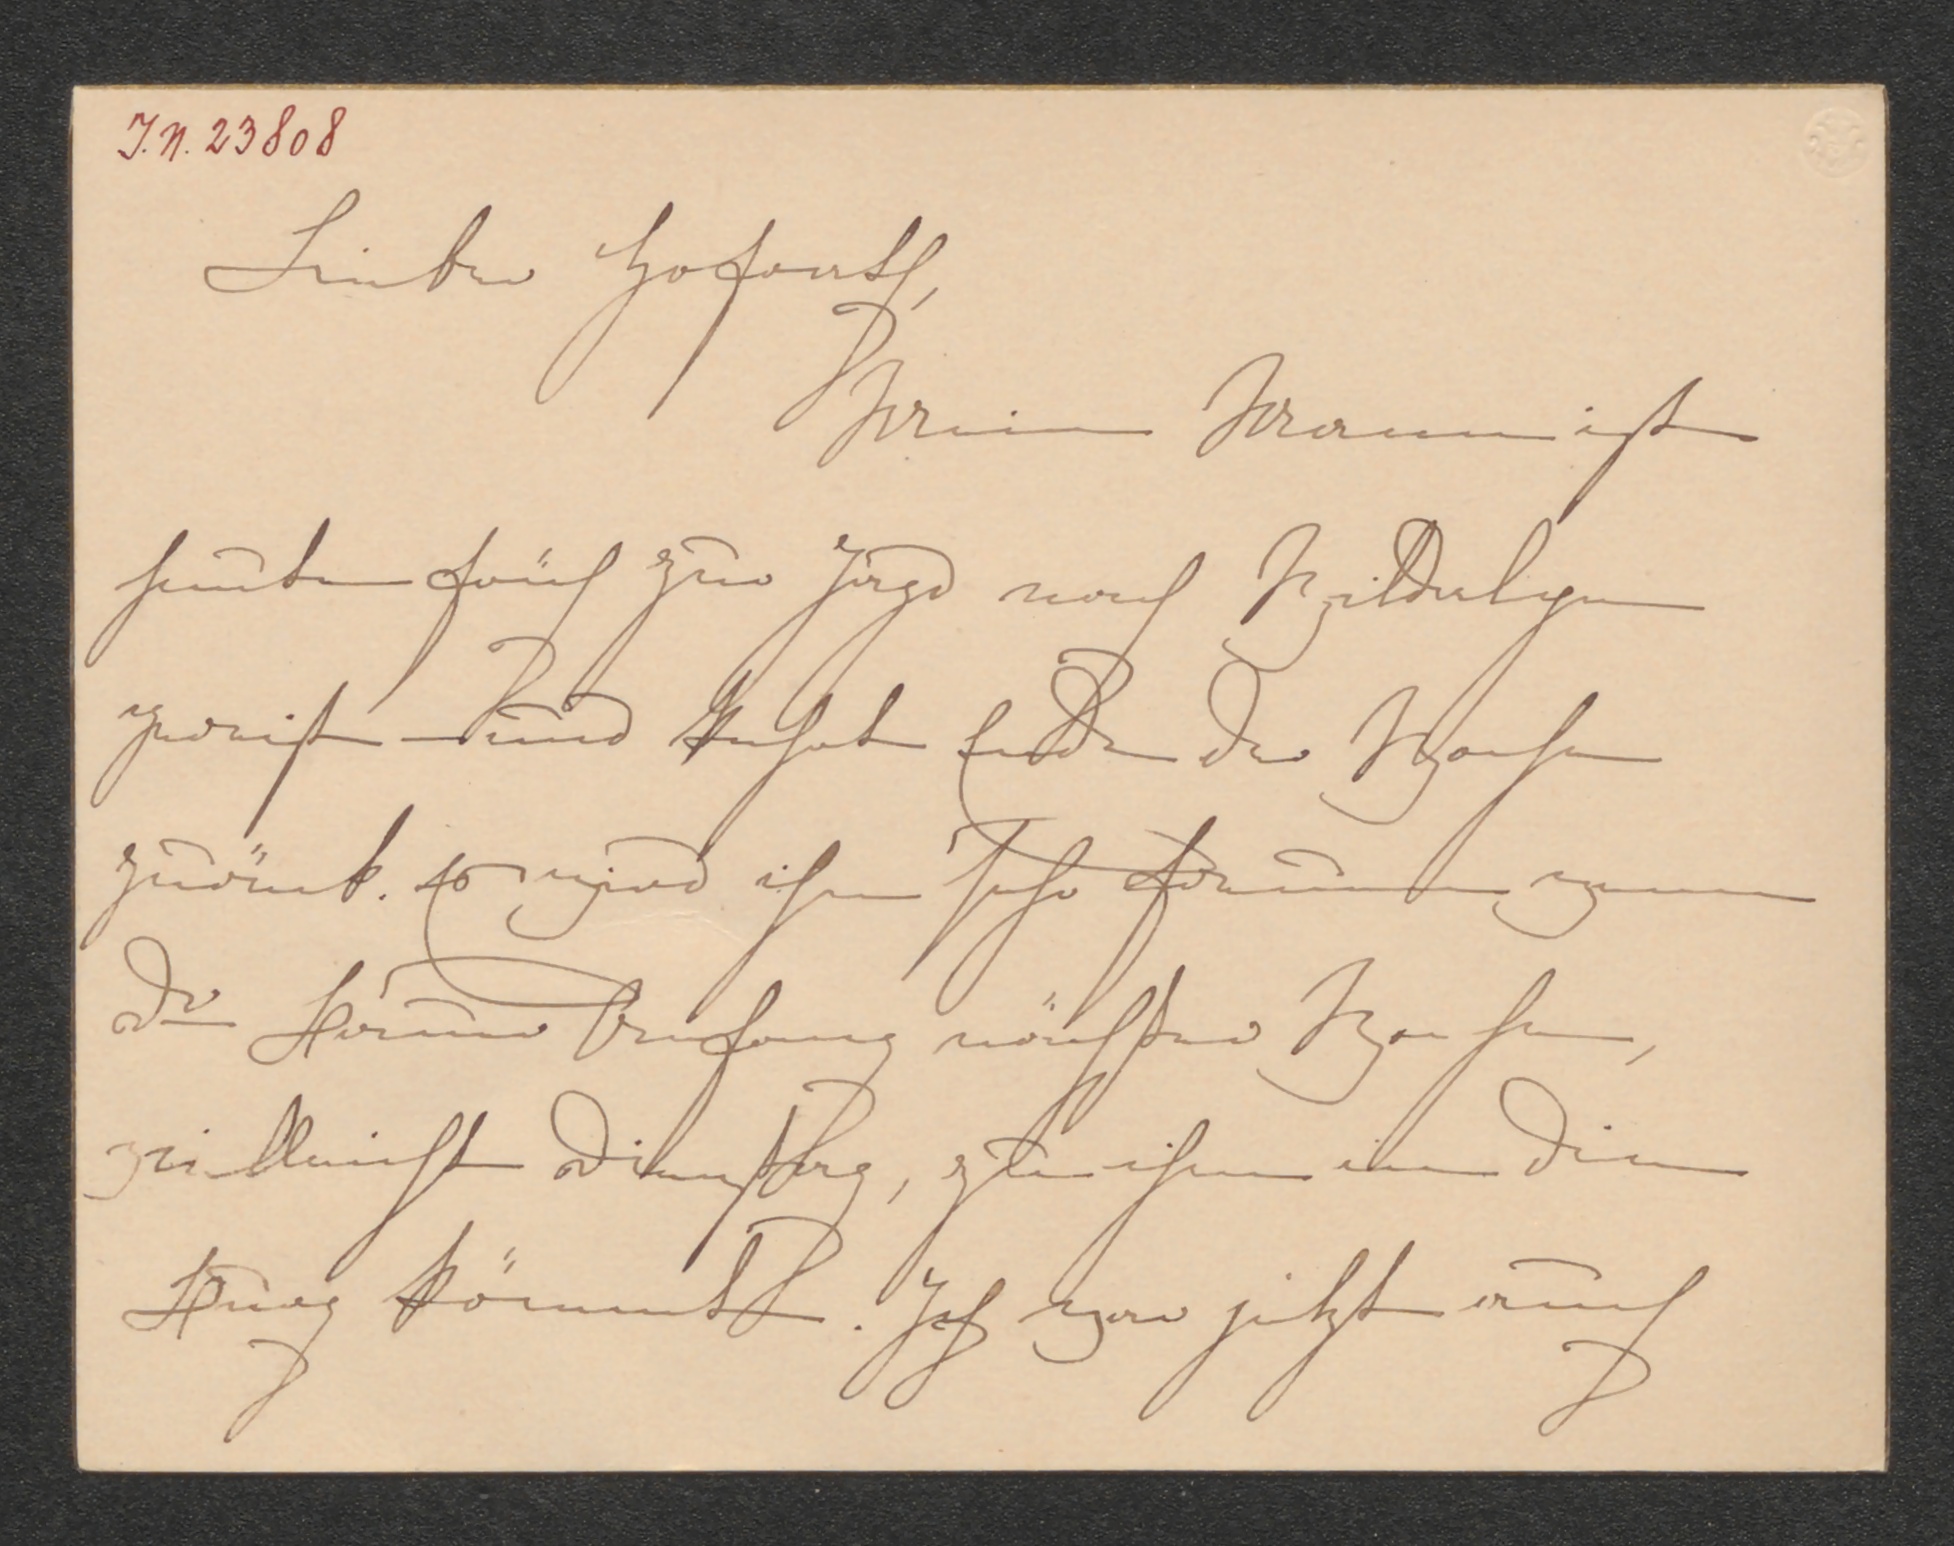 J.N. 23808
Lieber Hofrath,
Mein Mann ist
heute früh zur Jagd nach Wildalpen
gereist und kehrt Ende der Woche
zurück. Es wird ihn sehr freuen wenn
Sie Anfang nächster Woche,
vielleicht Dienstag, zu ihm in die
Burg kommt. Ich war jetzt auch